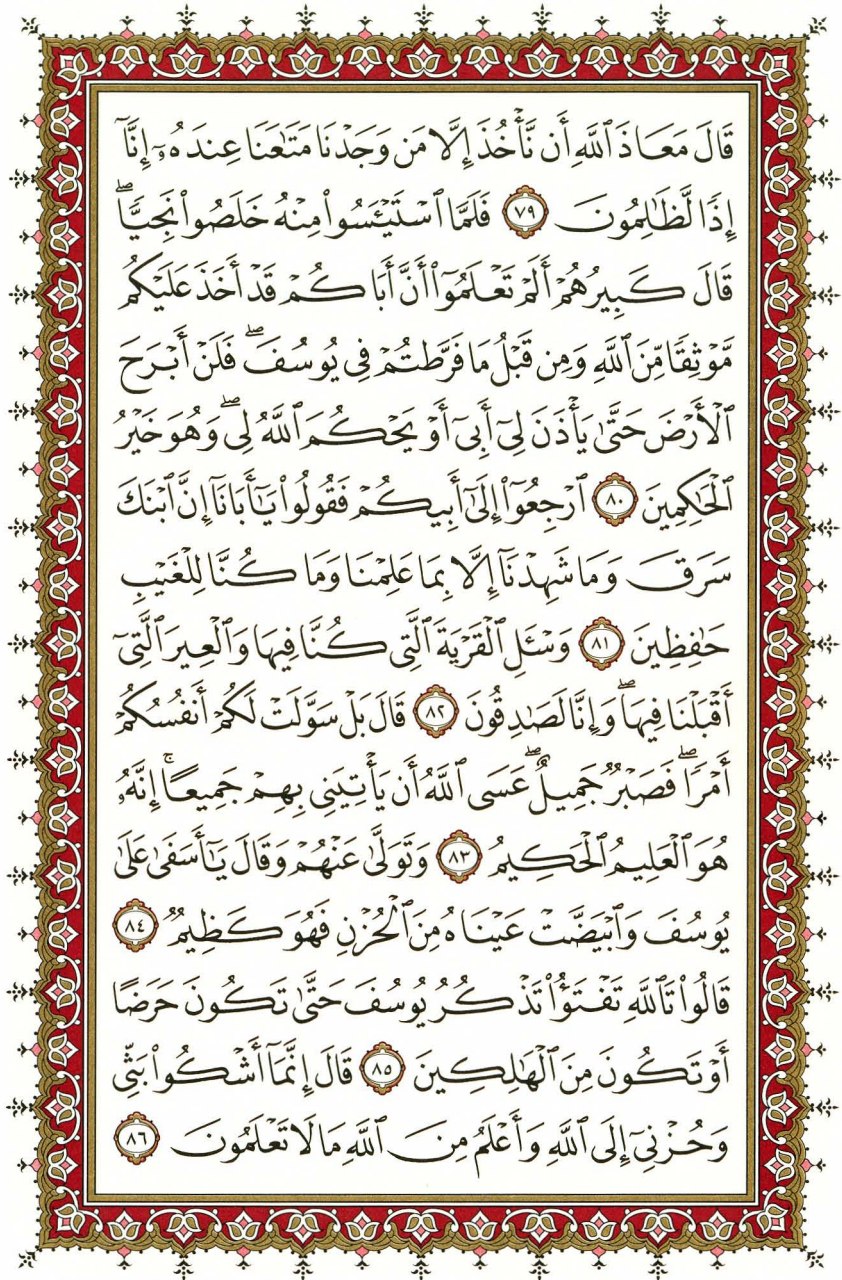 قَالَ مَعَاذَ ٱللَّهِ أَن نَّأۡخُذَ إِلَّا مَن وَجَدۡنَا مَتَٰعَنَا عِندَهُۥٓ إِنَّآ
إِذٗا لَّظَٰلِمُونَ ٧٩ فَلَمَّا ٱسۡتَيۡـَٔسُواْ مِنۡهُ خَلَصُواْ نَجِيّٗاۖ
قَالَ كَبِيرُهُمۡ أَلَمۡ تَعۡلَمُوٓاْ أَنَّ أَبَاكُمۡ قَدۡ أَخَذَ عَلَيۡكُم
مَّوۡثِقٗا مِّنَ ٱللَّهِ وَمِن قَبۡلُ مَا فَرَّطتُمۡ فِي يُوسُفَۖ فَلَنۡ أَبۡرَحَ
ٱلۡأَرۡضَ حَتَّىٰ يَأۡذَنَ لِيٓ أَبِيٓ أَوۡ يَحۡكُمَ ٱللَّهُ لِيۖ وَهُوَ خَيۡرُ
ٱلۡحَٰكِمِينَ ٨٠ ٱرۡجِعُوٓاْ إِلَىٰٓ أَبِيكُمۡ فَقُولُواْ يَٰٓأَبَانَآ إِنَّ ٱبۡنَكَ
سَرَقَ وَمَا شَهِدۡنَآ إِلَّا بِمَا عَلِمۡنَا وَمَا كُنَّا لِلۡغَيۡبِ
حَٰفِظِينَ ٨١ وَسۡـَٔلِ ٱلۡقَرۡيَةَ ٱلَّتِي كُنَّا فِيهَا وَٱلۡعِيرَ ٱلَّتِيٓ
أَقۡبَلۡنَا فِيهَاۖ وَإِنَّا لَصَٰدِقُونَ ٨٢ قَالَ بَلۡ سَوَّلَتۡ لَكُمۡ أَنفُسُكُمۡ
أَمۡرٗاۖ فَصَبۡرٞ جَمِيلٌۖ عَسَى ٱللَّهُ أَن يَأۡتِيَنِي بِهِمۡ جَمِيعًاۚ إِنَّهُۥ
هُوَ ٱلۡعَلِيمُ ٱلۡحَكِيمُ ٨٣ وَتَوَلَّىٰ عَنۡهُمۡ وَقَالَ يَٰٓأَسَفَىٰ عَلَىٰ
يُوسُفَ وَٱبۡيَضَّتۡ عَيۡنَاهُ مِنَ ٱلۡحُزۡنِ فَهُوَ كَظِيمٞ ٨٤
قَالُواْ تَٱللَّهِ تَفۡتَؤُاْ تَذۡكُرُ يُوسُفَ حَتَّىٰ تَكُونَ حَرَضًا
أَوۡ تَكُونَ مِنَ ٱلۡهَٰلِكِينَ ٨٥ قَالَ إِنَّمَآ أَشۡكُواْ بَثِّي
وَحُزۡنِيٓ إِلَى ٱللَّهِ وَأَعۡلَمُ مِنَ ٱللَّهِ مَا لَا تَعۡلَمُونَ ٨٦